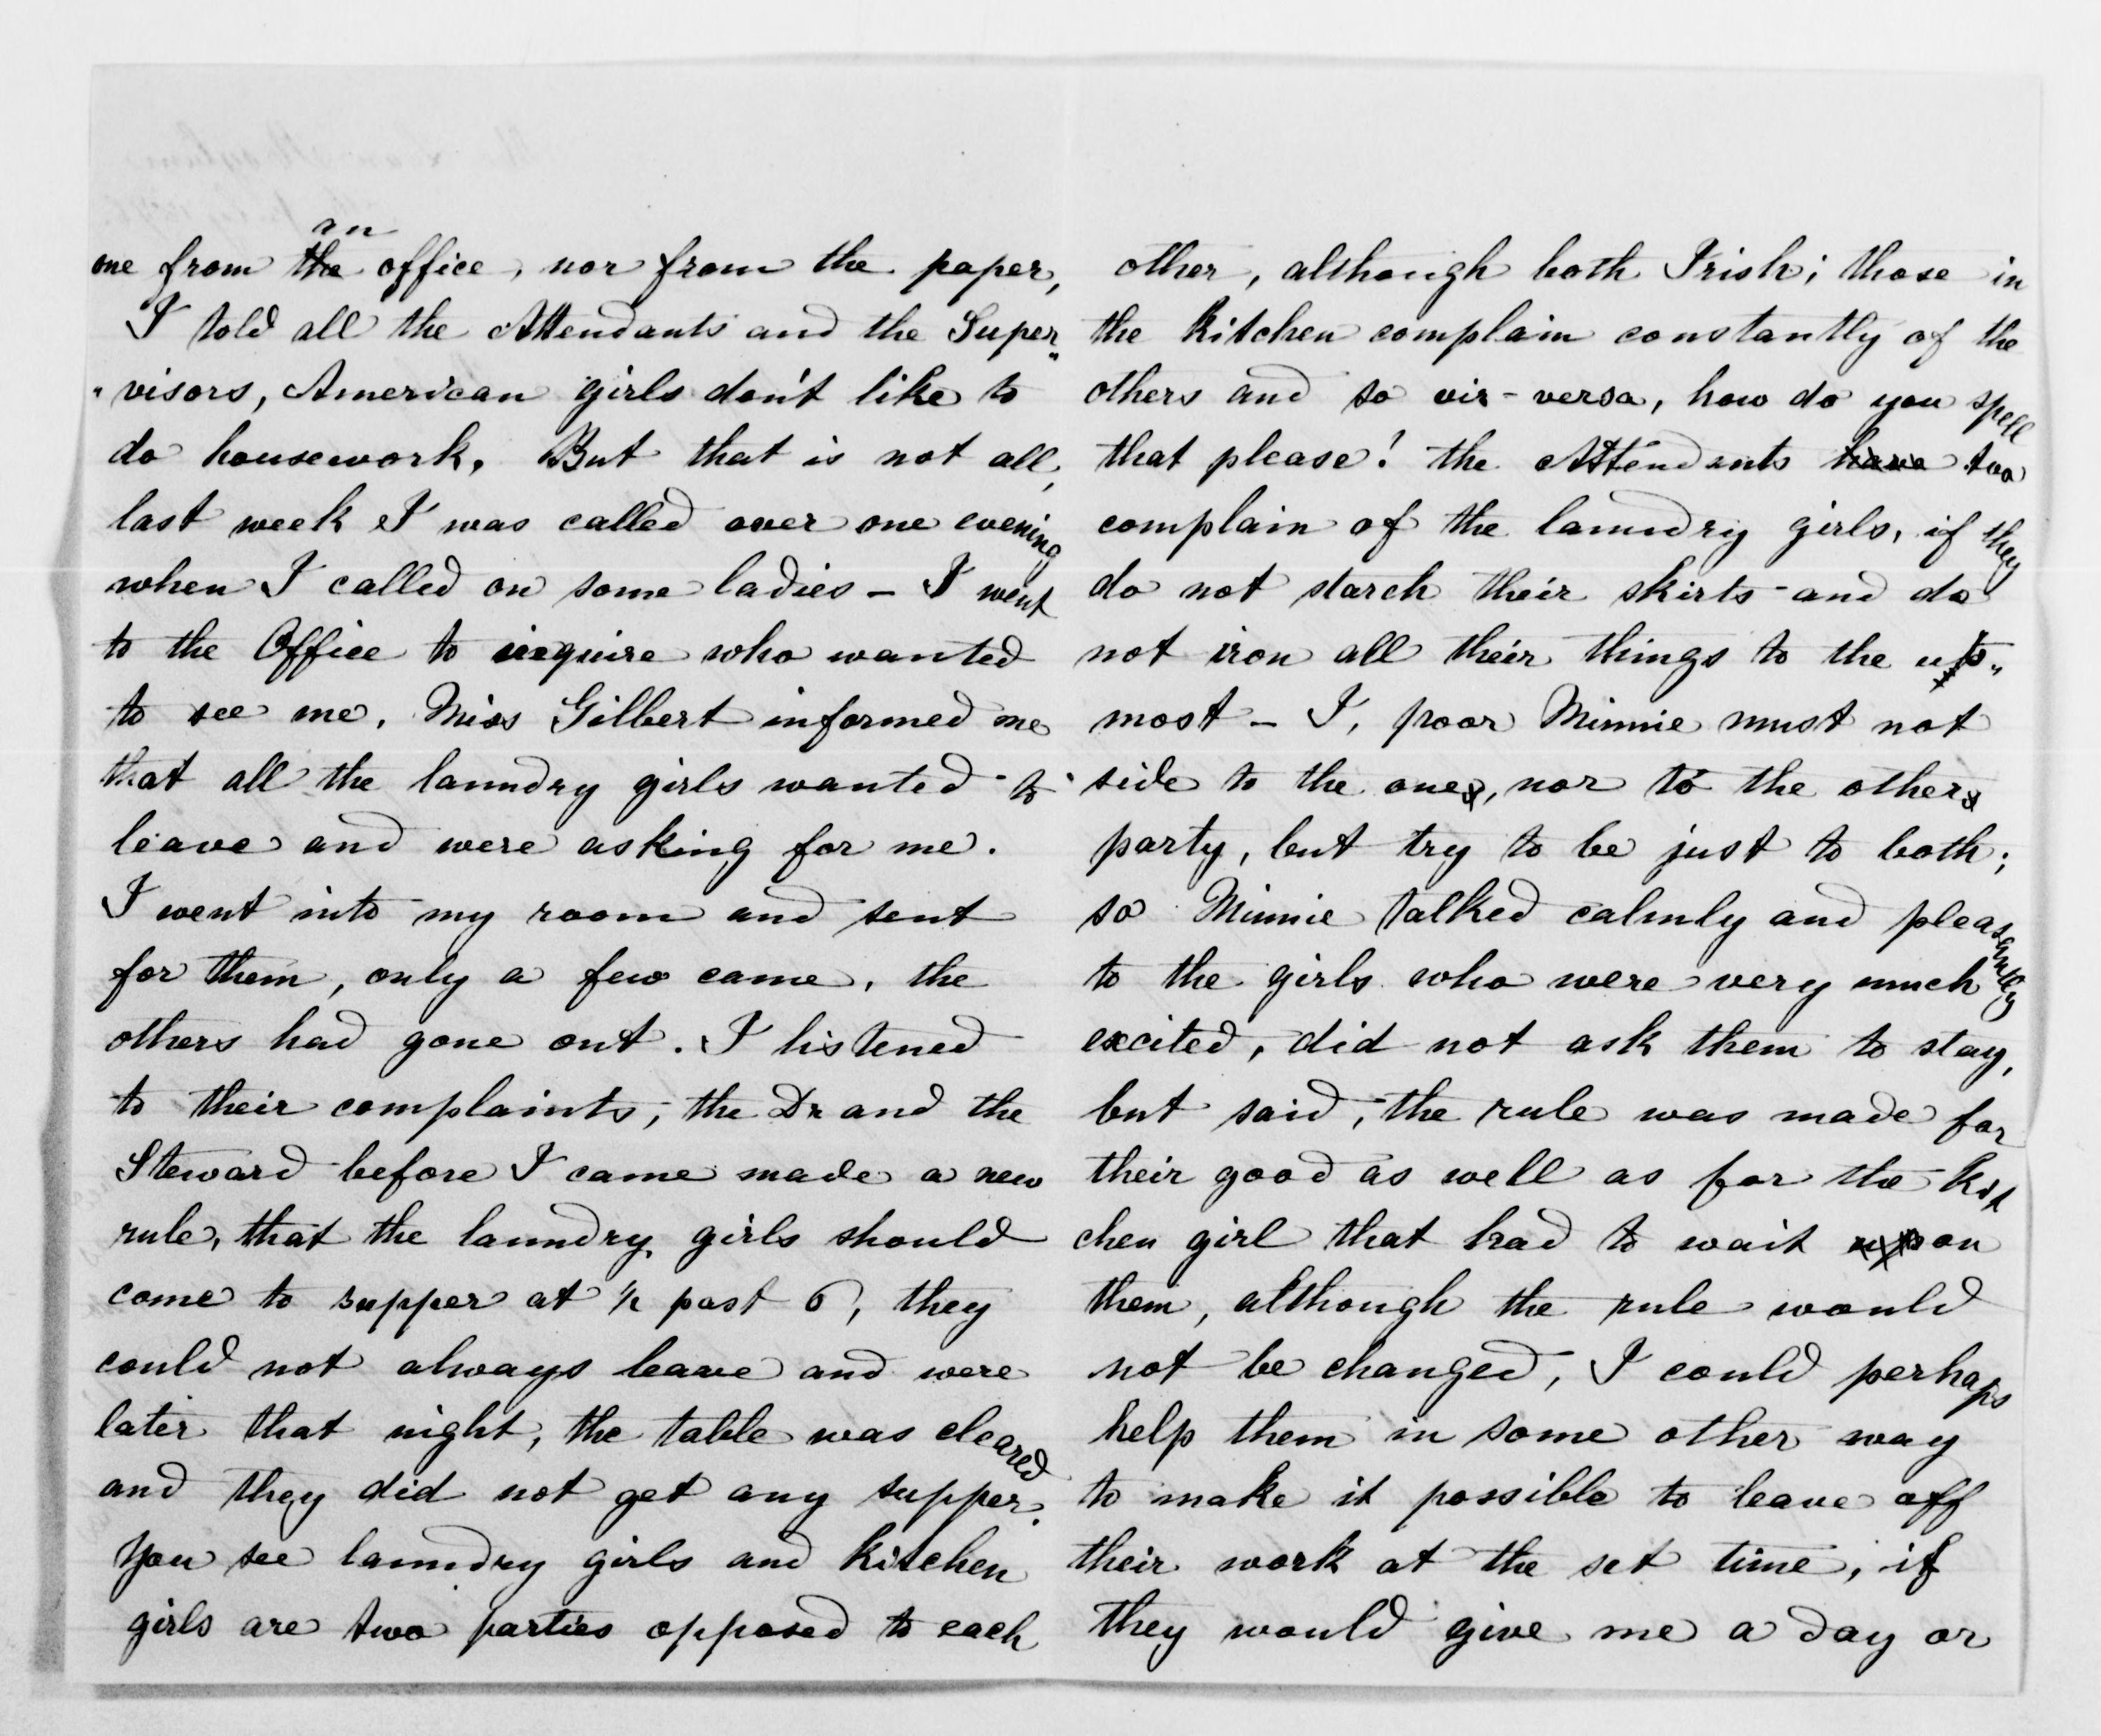 an
one from the office, nor from the paper,
I told all the Attendants and the Super„
„visors, American girls don't like to
do housework. But that is not all,
last week I was called over one evening
when I called on some ladies – I went
to the Office to inquire who wanted
to see me. Miss Gilbert informed me
that all the laundry girls wanted to
leave and were asking for me.
I went into my room and sent
for them, only a few came, the
others had gone out. I listened
to their complaints; the Dr and the
Steward before I came made a new
rule, that the laundry girls should
come to supper at ½ past 6, they
could not always leave and were
later that night, the table was cleared
and they did not get any supper.
You see laundry girls and kitchen
girls are two parties opposed to each
other, although both Irish; those in
the kitchen complain constantly of the
others and so vis-versa, how do you spell
that please! the Attendants have too
complain of the laundry girls, if they
do not starch their skirts and do
not iron all their things to the ut„
most – I, poor Minnie must not
side to the ones, nor to the others
party, but try to be just to both;
so Minnie talked calmly and pleasantly
to the girls who were very much
excited, did not ask them to stay,
but said, the rule was made for
their good as well as for the kit
chen girl that had to wait upon on
them, although the rule would
not be changed, I could perhaps
help them in some other way
to make it possible to leave off
their work at the set time, if
they would give me a day or